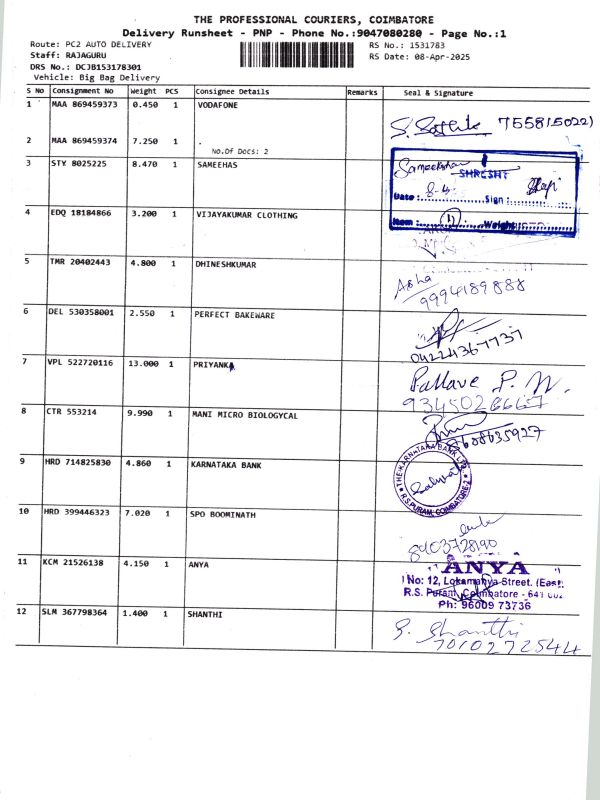 THE PROFESSIONAL COURIERS, COIMBATORE
Delivery Runsheet - PNP - Phone No.:9047080280 - Page No.:1
Route: PC2 AUTO DELIVERY
Staff: RAJAGURU
DRS No.: DCJB153178301
Vehicle: Big Bag Delivery
RS No.: 1531783
RS Date: 08-Apr-2025
S No Consignment No Weight PCS Consignee Details Remarks Seal & Signature
1 MAA 869459373 0.450 1 VODAFONE
7558150221
2 MAA 869459374 7.250 1 .
No.Of Docs: 2
3 STY 8025225 8.470 1 SAMEEHAS
SHRESHT
Date : 8-4 Sign :
Item : 11 Weight
4 EDQ 18184866 3.200 1 VIJAYAKUMAR CLOTHING
5 TMR 20402443 4.800 1 DHINESHKUMAR
Asha
9994189888
6 DEL 530358001 2.550 1 PERFECT BAKEWARE
04224367737
7 VPL 522720116 13.000 1 PRIYANKA
Pallave P. N.
9345026667
8 CTR 553214 9.990 1 MANI MICRO BIOLOGYCAL
9 HRD 714825830 4.860 1 KARNATAKA BANK
THE KARNATAKA BANK LTD.
R.S PURAM, COIMBATORE-2
10 HRD 399446323 7.020 1 SPO BOOMINATH
11 KCM 21526138 4.150 1 ANYA
ANYA
No: 12, Lokamanya Street. (East)
R.S. Puram, Coimbatore - 641 002
Ph: 96009 73736
12 SLM 367798364 1.400 1 SHANTHI
S. Shanthi
7010272544